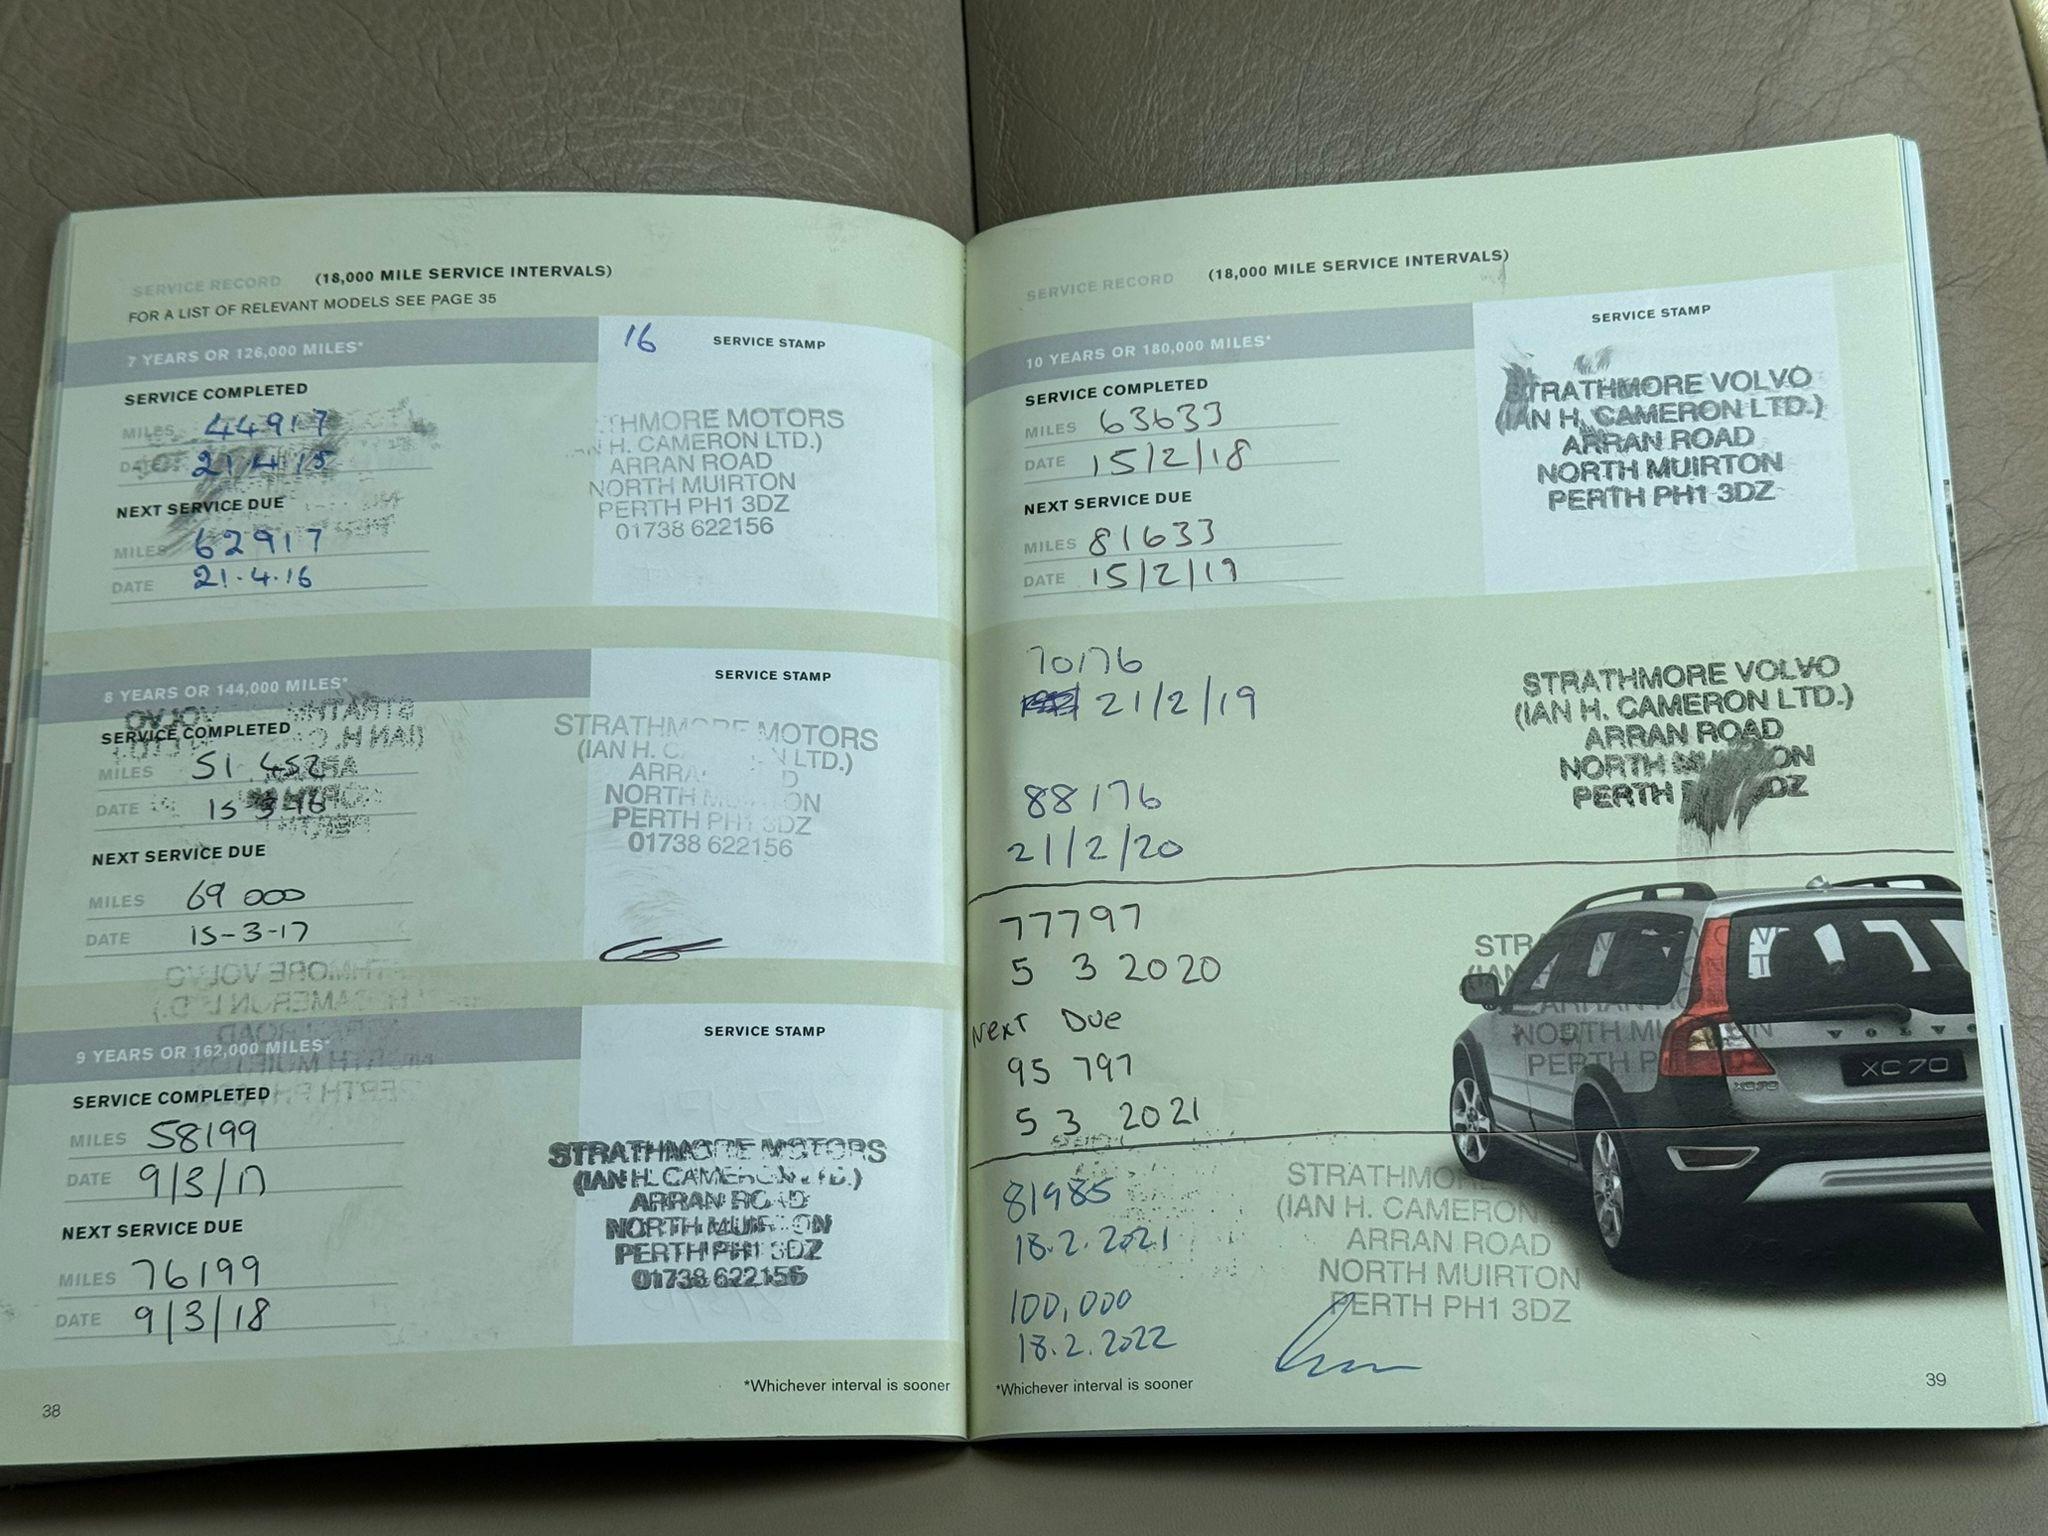 SERVICE RECORD (18,000 MILE SERVICE INTERVALS)
FOR A LIST OF RELEVANT MODELS SEE PAGE 35
7 YEARS OR 126,000 MILES*
16 SERVICE STAMP
SERVICE COMPLETED
MILES 44917
DATE 21.4.15
NEXT SERVICE DUE
MILES 62917
DATE 21.4.16
THMORE MOTORS
N H. CAMERON LTD.)
ARRAN ROAD
NORTH MUIRTON
PERTH PH1 3DZ
01738 622156
8 YEARS OR 144,000 MILES*
SERVICE STAMP
SERVICE COMPLETED
MILES 51 452
DATE 15 3-16
NEXT SERVICE DUE
MILES 69 000
DATE 15-3-17
STRATHMORE MOTORS
(IAN H. CAMERON LTD.)
ARRAN ROAD
NORTH MUIRTON
PERTH PH1 3DZ
01738 622156
9 YEARS OR 162,000 MILES*
SERVICE STAMP
SERVICE COMPLETED
MILES 58199
DATE 9/3/17
NEXT SERVICE DUE
MILES 76199
DATE 9/3/18
STRATHMORE MOTORS
(IAN H. CAMERON LTD.)
ARRAN ROAD
NORTH MUIRTON
PERTH PH1 3DZ
01738 622156
*Whichever interval is sooner
38
SERVICE RECORD (18,000 MILE SERVICE INTERVALS)
10 YEARS OR 180,000 MILES*
SERVICE STAMP
SERVICE COMPLETED
MILES 63633
DATE 15/2/18
NEXT SERVICE DUE
MILES 81633
DATE 15/2/19
STRATHMORE VOLVO
(IAN H. CAMERON LTD.)
ARRAN ROAD
NORTH MUIRTON
PERTH PH1 3DZ
70176
21/2/19
88176
21/2/20
STRATHMORE VOLVO
(IAN H. CAMERON LTD.)
ARRAN ROAD
NORTH MUIRTON
PERTH 3DZ
77797
5 3 2020
Next Due
95 797
5 3 2021
STRATHMORE VOLVO
(IAN
ARRAN ROAD
NORTH MUIRTON
PERTH P
VOLVO
XC70
XC70
81985
18.2.2021
100,000
18.2.2022
STRATHMOR
(IAN H. CAMERON
ARRAN ROAD
NORTH MUIRTON
PERTH PH1 3DZ
*Whichever interval is sooner
39